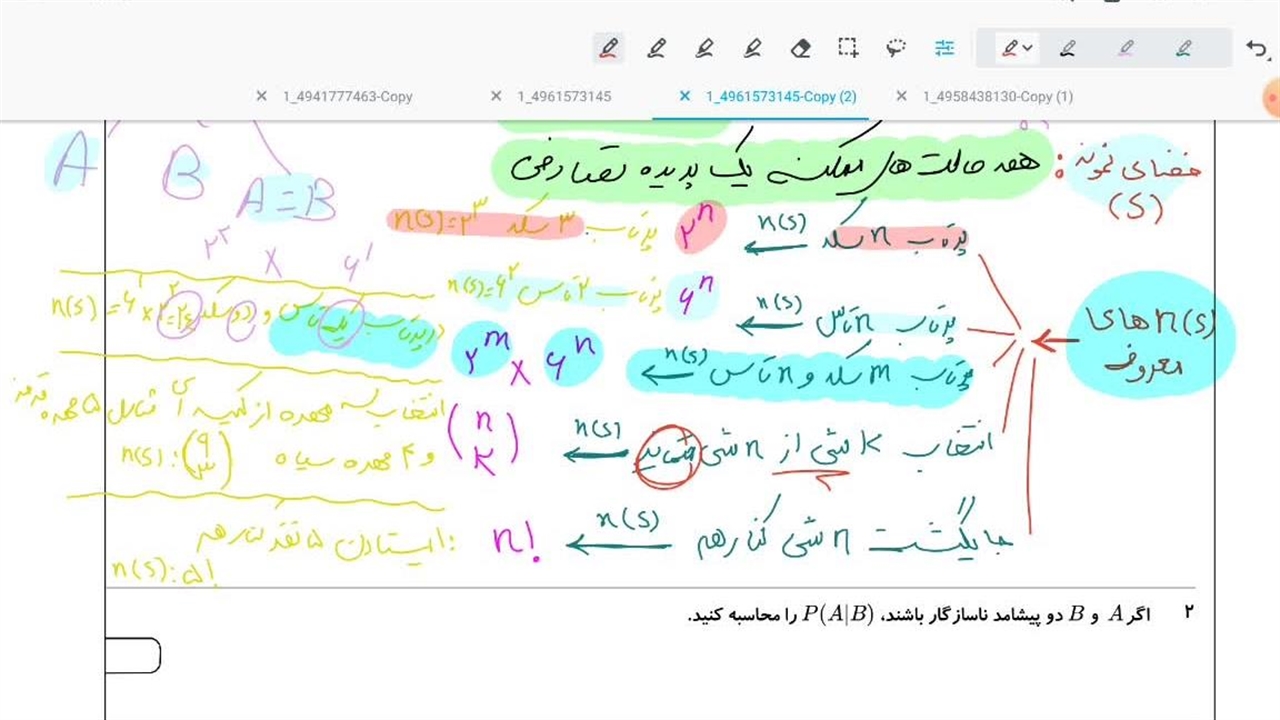 1_4941777463-Copy
1_4961573145
1_4961573145-Copy (2)
1_4958438130-Copy (1)
فضای نمونه : همه حالت های ممکنه یک پدیده تصادفی
(S)
A
B
A = B
۲^۲ × ۶^۱
n(s) های معروف
پرتاب n سکه n(s) ۲^n پرتاب ۳ سکه n(s)=۲^۳
پرتاب n تاس n(s) ۶^n پرتاب ۲ تاس n(s)=۶^۲
پرتاب m سکه و n تاس n(s) ۲^m × ۶^n در پرتاب یک تاس و دو سکه n(s)=۶^۱×۲^۲
انتخاب k شی از n شی متمایز n(s) (n k) انتخاب سه مهره از کیسه ای شامل ۵ مهره قرمز
و ۴ مهره سیاه n(s): (۹ ۳)
جایگشت n شی کنار هم n(s) n! ایستادن ۵ نفر کنار هم:
n(s): ۵!
۲ اگر A و B دو پیشامد ناسازگار باشند، P(A|B) را محاسبه کنید.